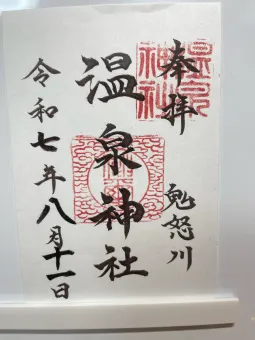 奉拝
鬼怒川
温泉神社
令和七年八月十一日
温泉
神社